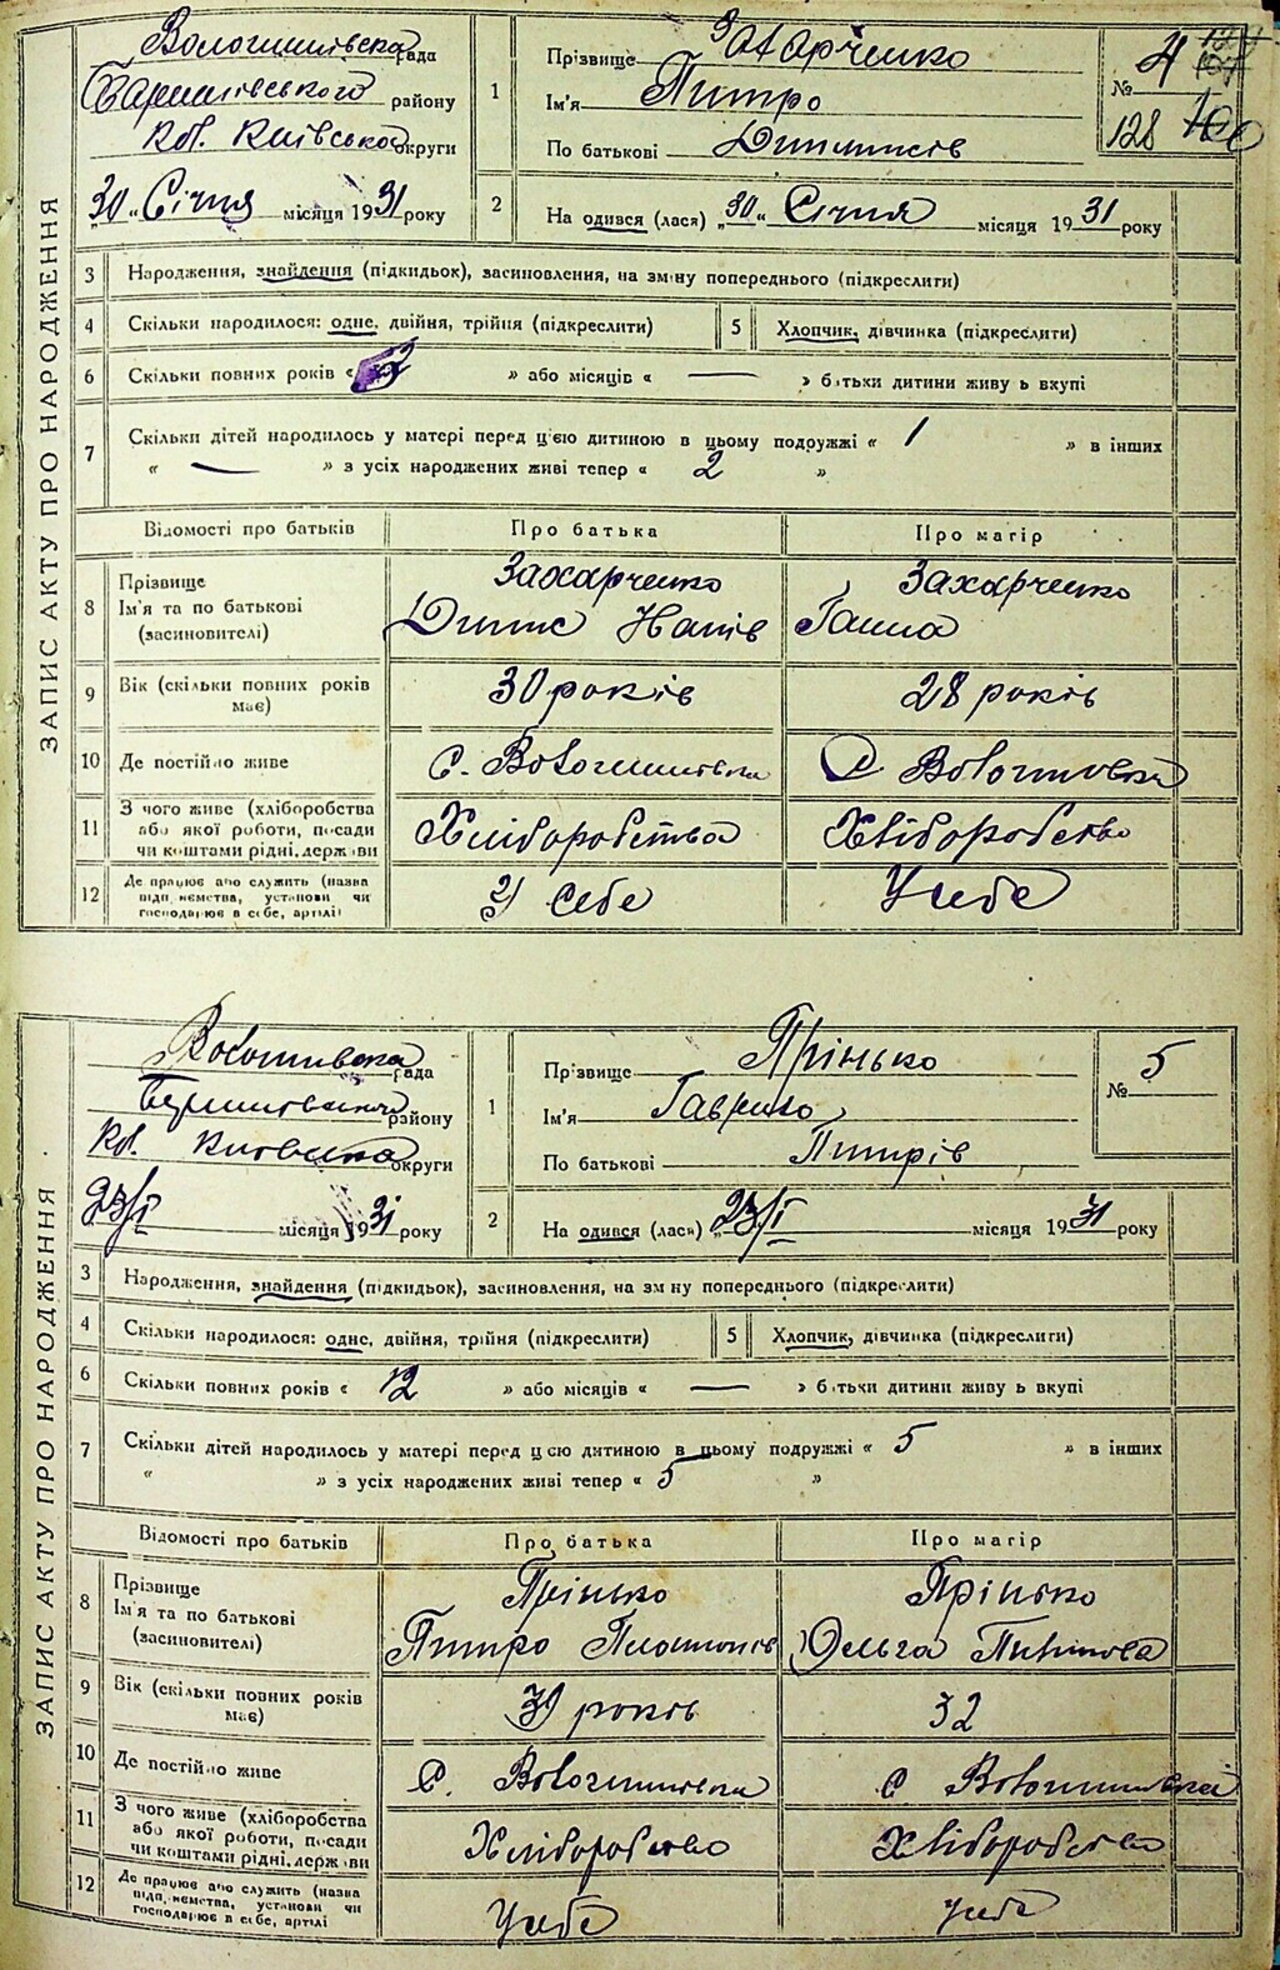 ЗАПИС АКТУ ПРО НАРОДЖЕННЯ
рада
району
округи
„30“ Січня місяця 1931 року
1
Прізвище Захарченко
Ім'я Питро
По батькові
№ 4
128
2
На одився (лася) „30“ Січня місяця 1931 року
3 Народження, знайдення (підкидьок), засиновлення, на зміну попереднього (підкреслити)
4 Скільки народилося: одне, двійня, трійня (підкреслити)
5 Хлопчик, дівчинка (підкреслити)
6 Скільки повних років « » або місяців « — » батьки дитини живу ь вкупі
7 Скільки дітей народилось у матері перед цією дитиною в цьому подружжі « 1 » в інших
« — » з усіх народжених живі тепер « 2 »
Відомості про батьків
Про батька
Про матір
8 Прізвище
Ім'я та по батькові
(засиновителі)
Захарченко
Захарченко
Ганна
9 Вік (скільки повних років
має)
30 років
28 років
10 Де постійно живе
с.
с
11 З чого живе (хліборобства
або якої роботи, посади
чи коштами рідні, держ ави
Хліборобства
Хліборобство
12 Де працює або служить (назва
підп иємства, установи чи
господарює в себе, артілі)
У себе
У себе
ЗАПИС АКТУ ПРО НАРОДЖЕННЯ
рада
району
округи
23/I місяця 1931 року
1
Прізвище Ярінько
Ім'я Гаврило
По батькові Питрів
№ 5
2
На одився (лася) „23/I місяця 1931 року
3 Народження, знайдення (підкидьок), засиновлення, на зм ну попереднього (підкреслити)
4 Скільки народилося: одне, двійня, трійня (підкреслити)
5 Хлопчик, дівчинка (підкреслити)
6 Скільки повних років « 12 » або місяців « — » батьки дитини живу ь вкупі
7 Скільки дітей народилось у матері перед цією дитиною в цьому подружжі « 5 » в інших
« » з усіх народжених живі тепер « 5 »
Відомості про батьків
Про батька
Про матір
8 Прізвище
Ім'я та по батькові
(засиновителі)
Ярінько
Питро
Ярінько
Ольга
9 Вік (скільки повних років
має)
років
32
10 Де постійно живе
с.
с
11 З чого живе (хліборобства
або якої роботи, посади
чи коштами рідні, держ ави
Хліборобство
Хліборобство
12 Де працює або служить (назва
підп иємства, установи чи
господарює в себе, артілі
У себе
У себе